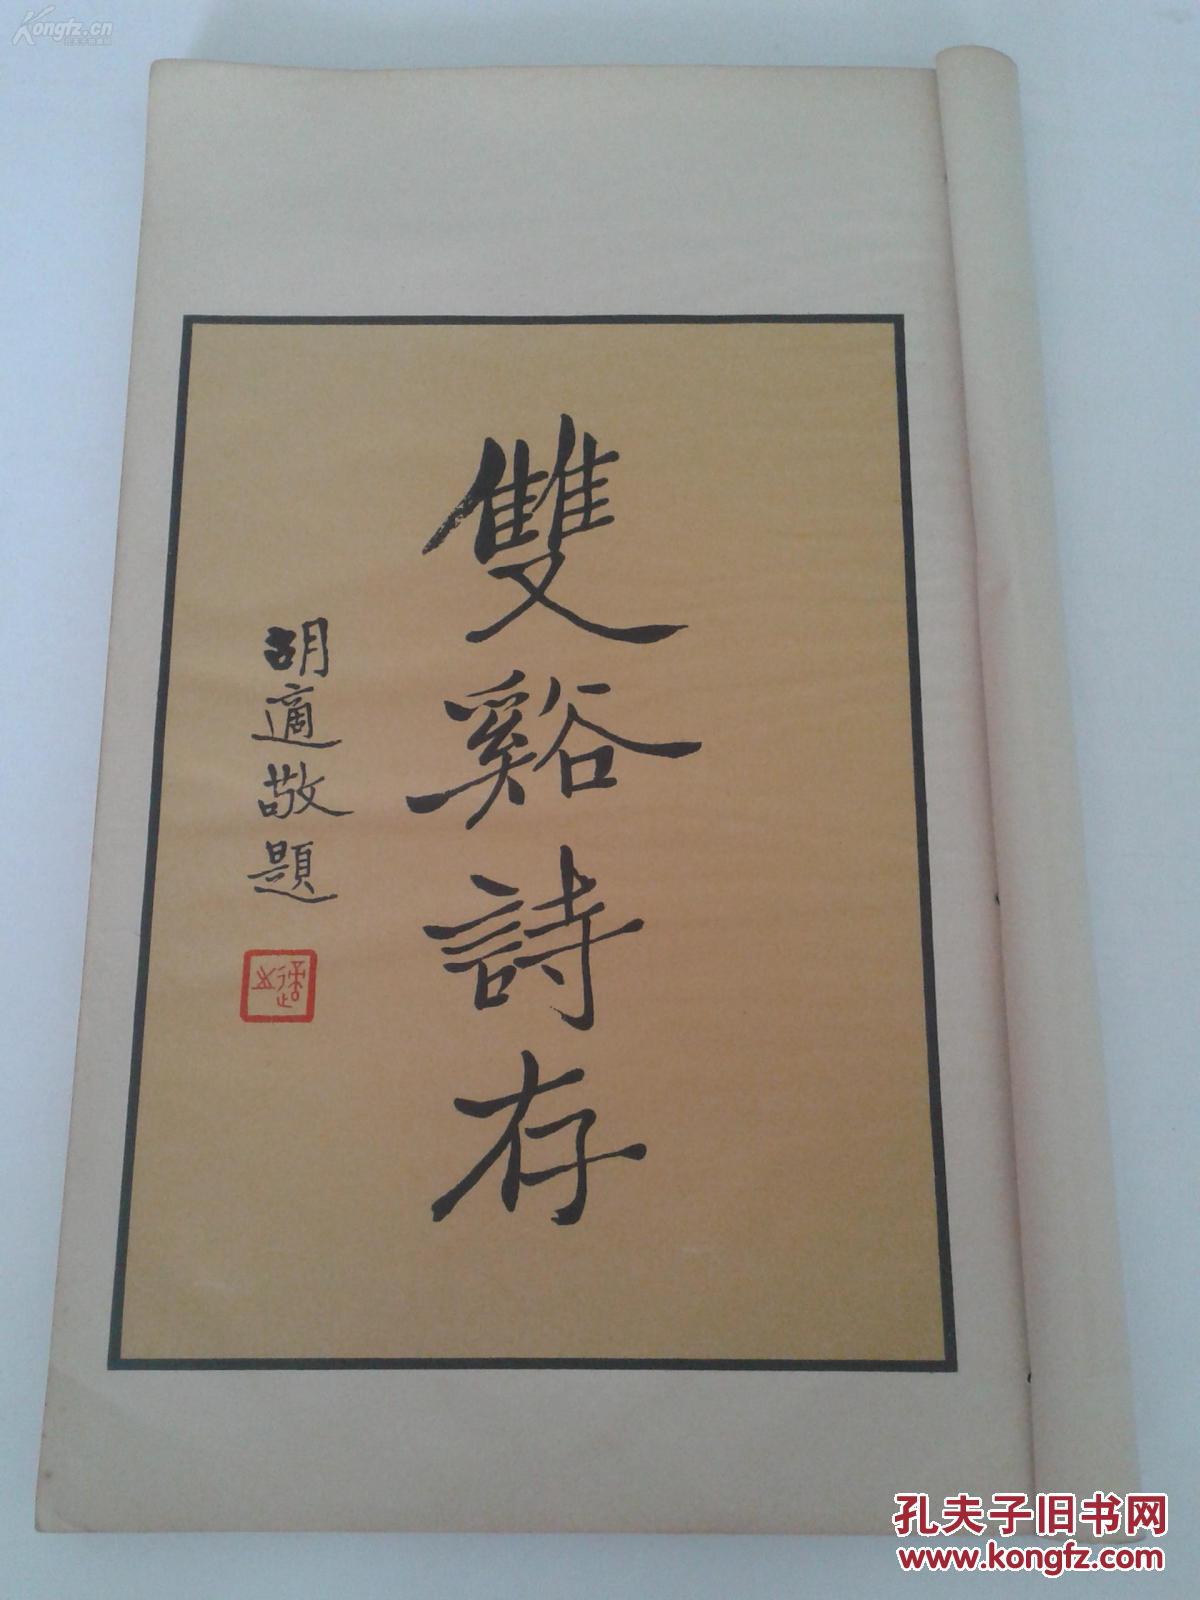 Kongfz.cn
雙谿詩存
胡適敬題
孔夫子旧书网
www.kongfz.com